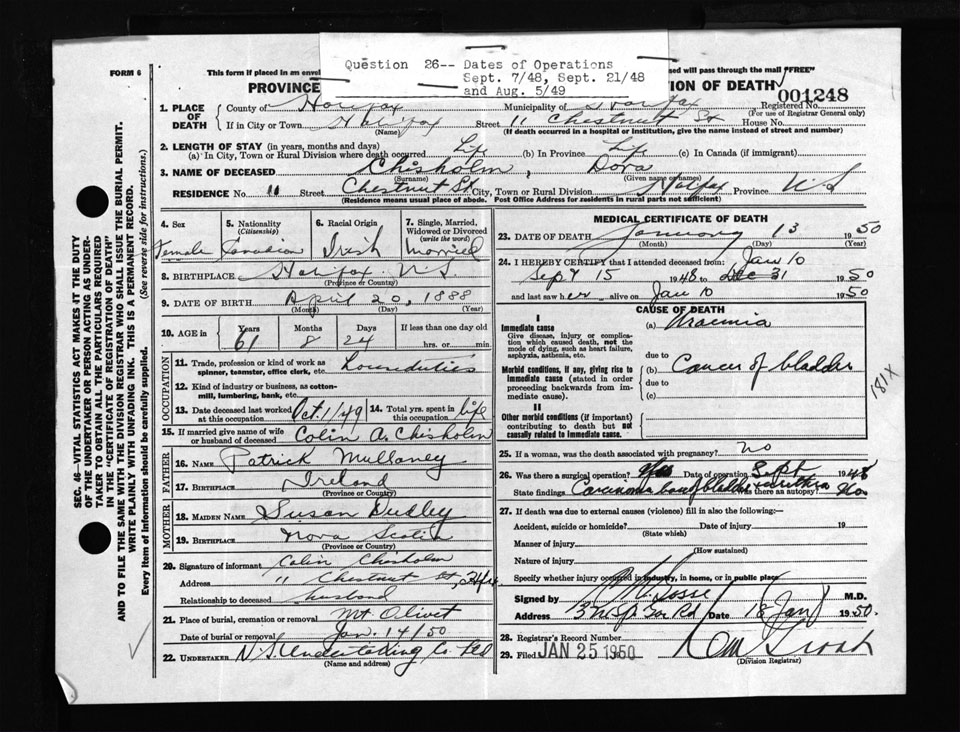 Question 26-- Dates of Operations
Sept. 7/48, Sept. 21/48
and Aug. 5/49
FORM 6
This form if placed in an envel
sed will pass through the mail "FREE"
PROVINCE
ION OF DEATH
001248
Registered No.
(For use of Registrar General only)
1. PLACE OF DEATH
County of Halifax
Municipality of Halifax
If in City or Town Halifax Street 11 Chestnut St House No.
(Name) (If death occurred in a hospital or institution, give the name instead of street and number)
2. LENGTH OF STAY (in years, months and days)
(a) In City, Town or Rural Division where death occurred Life (b) In Province Life (c) In Canada (if immigrant)
3. NAME OF DECEASED Chisholm, Dora
(Surname) (Given name or names)
RESIDENCE No. 11 Street Chestnut St City, Town or Rural Division Halifax Province N S
(Residence means usual place of abode. Post Office Address for residents in rural parts not sufficient)
4. Sex Female
5. Nationality (Citizenship) Canadian
6. Racial Origin Irish
7. Single, Married, Widowed or Divorced (write the word) Married
8. BIRTHPLACE Halifax N.S.
(Province or Country)
9. DATE OF BIRTH April 20, 1888
(Month) (Day) (Year)
10. AGE in Years 61 Months 8 Days 24 If less than one day old hrs. or min.
OCCUPATION
11. Trade, profession or kind of work as spinner, teamster, office clerk, etc. House duties
12. Kind of industry or business, as cotton-mill, lumbering, bank, etc.
13. Date deceased last worked at this occupation Oct. 1/49
14. Total yrs. spent in this occupation Life
15. If married give name of wife or husband of deceased Colin A. Chisholm
FATHER
16. NAME Patrick Mullaney
17. BIRTHPLACE Ireland
(Province or Country)
MOTHER
18. MAIDEN NAME Susan Dudley
19. BIRTHPLACE Nova Scotia
(Province or Country)
20. Signature of informant Colin Chisholm
Address 11 Chestnut St,
Relationship to deceased husband
21. Place of burial, cremation or removal Mt. Olivet
Date of burial or removal Jan. 14/50
22. UNDERTAKER N.S. Undertaking Co. Ltd
(Name and address)
MEDICAL CERTIFICATE OF DEATH
23. DATE OF DEATH January 13 1950
(Month) (Day) (Year)
24. I HEREBY CERTIFY that I attended deceased from: Jan 10
Sept 15 1948 to Dec 31 1950
and last saw her alive on Jan 10 1950
CAUSE OF DEATH
I
Immediate cause (a) Uraemia
Give disease, injury or complication which caused death, not the mode of dying, such as heart failure, asphyxia, asthenia, etc.
due to
Morbid conditions, if any, giving rise to immediate cause (stated in order proceeding backwards from immediate cause).
(b) Cancer of bladder
due to
(c)
181X
II
Other morbid conditions (if important) contributing to death but not causally related to immediate cause.
25. If a woman, was the death associated with pregnancy? no
26. Was there a surgical operation? Yes Date of operation Sept 1948
State findings Carcinoma of bladder urethra Was there an autopsy? No
27. If death was due to external causes (violence) fill in also the following:—
Accident, suicide or homicide? Date of injury 19
(State which)
Manner of injury
(How sustained)
Nature of injury
Specify whether injury occurred in industry, in home, or in public place
Signed by M.D.
Address Rd Date 18 Jan 1950.
28. Registrar's Record Number
29. Filed JAN 25 1950
(Division Registrar)
SEC. 46—VITAL STATISTICS ACT MAKES IT THE DUTY
OF THE UNDERTAKER OR PERSON ACTING AS UNDER-
TAKER TO OBTAIN ALL THE PARTICULARS REQUIRED
IN THE "CERTIFICATE OF REGISTRATION OF DEATH"
AND TO FILE THE SAME WITH THE DIVISION REGISTRAR WHO SHALL ISSUE THE BURIAL PERMIT.
WRITE PLAINLY WITH UNFADING INK. THIS IS A PERMANENT RECORD.
Every item of information should be carefully supplied. (See reverse side for instructions.)